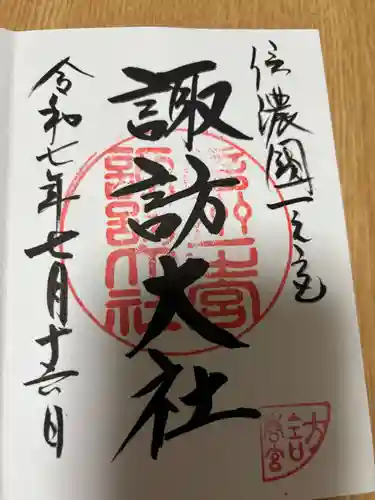 信濃國一之宮
諏訪大社
令和七年七月十六日